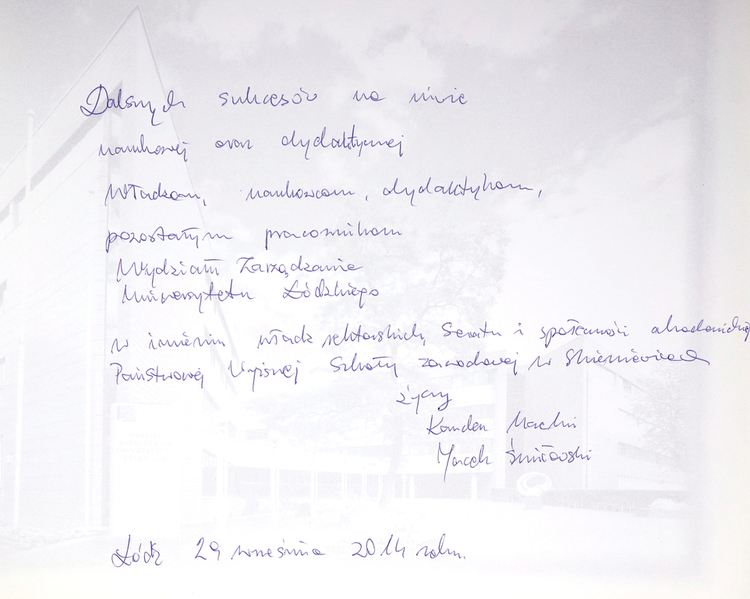 Dalszych sukcesów na niwie
naukowej oraz dydaktycznej
Władzom, naukowcom, dydaktykom,
pozostałym pracownikom
Wydziału Zarządzania
Uniwersytetu Łódzkiego
w imieniu władz rektorskich, Senatu i społeczności akademickiej
Państwowej Wyższej Szkoły Zawodowej w Skierniewicach
życzy
Kanclerz
Marek
Łódź 29 września 2014 roku.